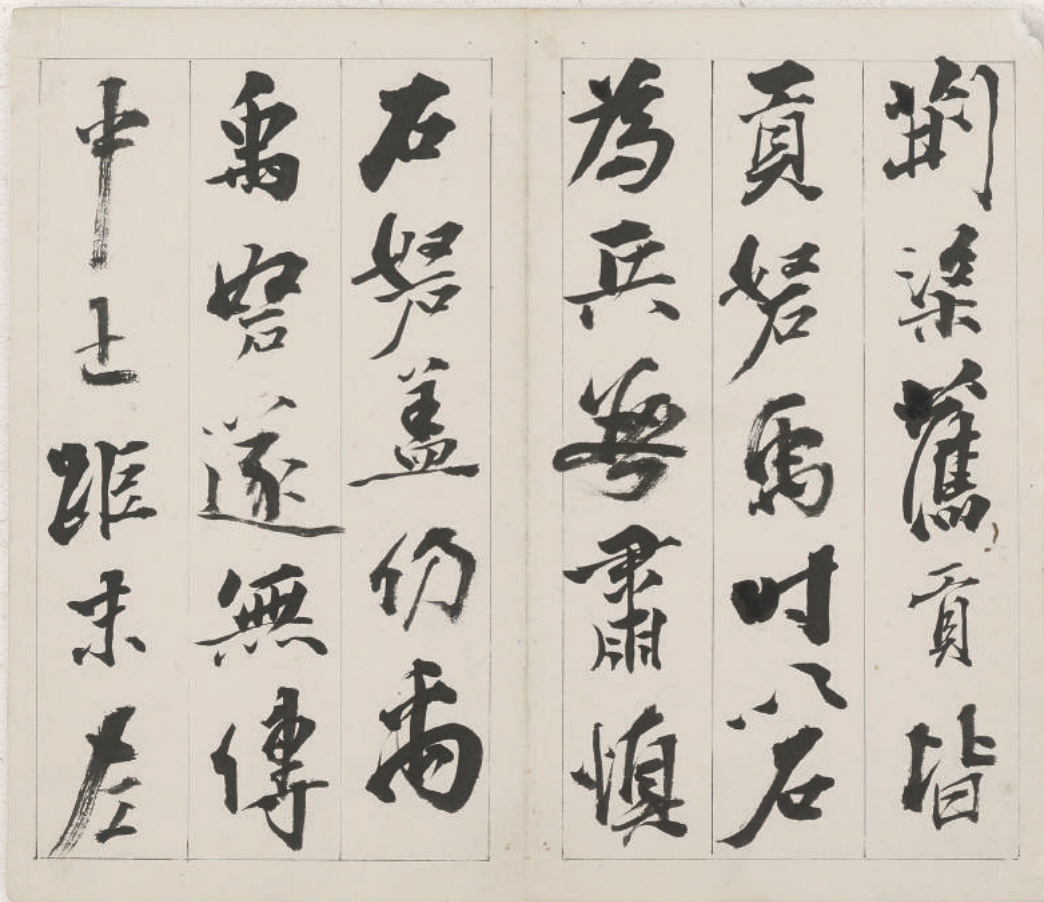 荊梁舊貢皆
貢砮禹時以石
為兵肅慎
石砮蓋仍禹
禹砮遂無傳
中土距末左